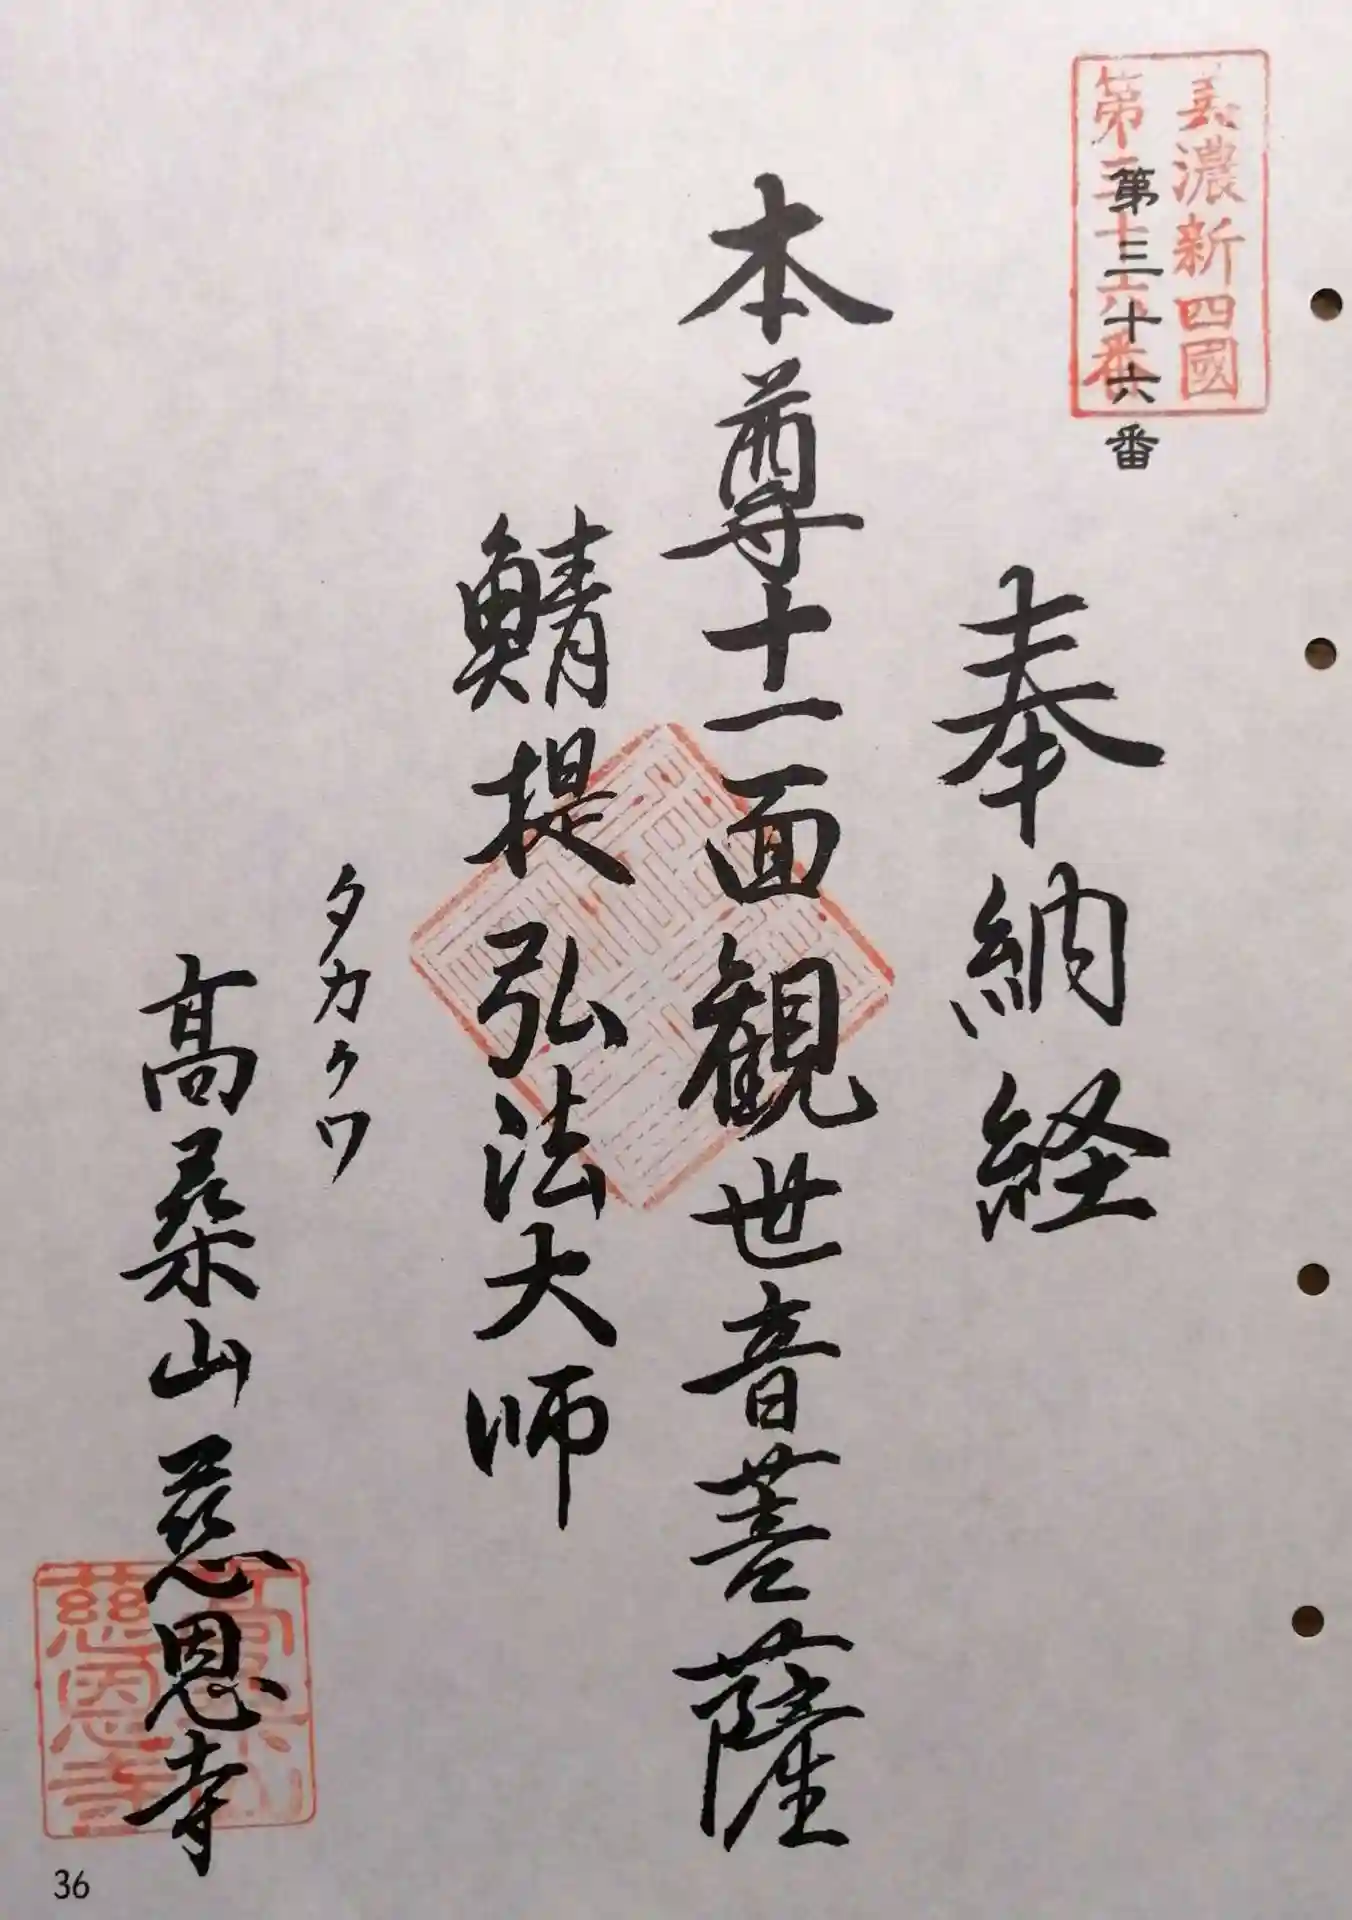 美濃新四國
第三十六番
第三十六番
奉納経
本尊十一面観世音菩薩
鯖提弘法大師
タカクワ
髙桒山慈恩寺
慈恩寺
36